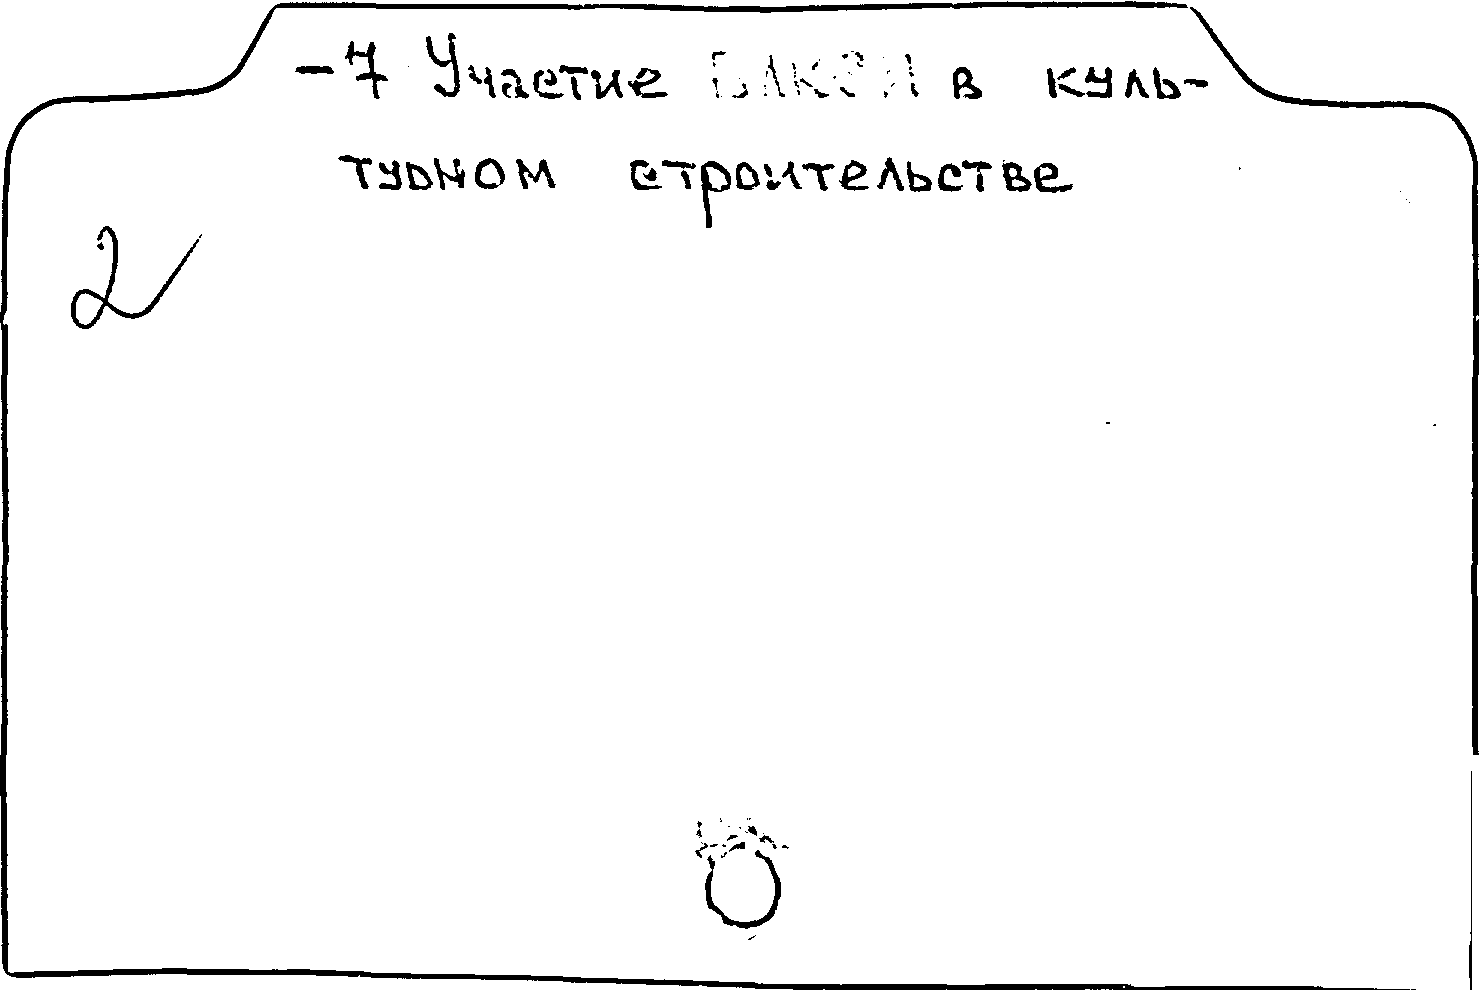 -7 Участие ВЛКСМ в куль-
турном строительстве
2